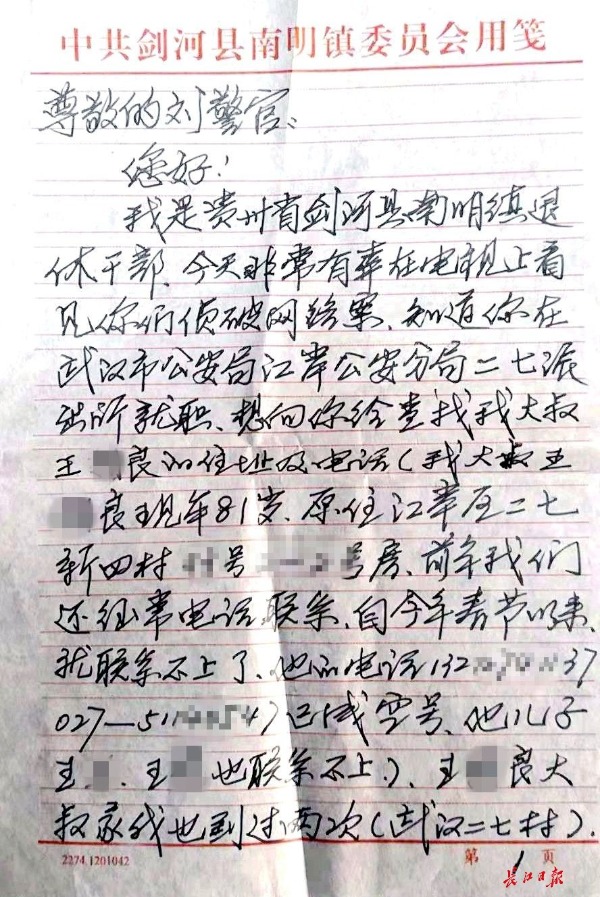 中共剑河县南明镇委员会用笺
尊敬的刘警官、
您好！
我是贵州省剑河县南明镇退
休干部、今天非常有幸在电视上看
见你们侦破网络案、知道你在
武汉市公安局江岸公安分局二七派
出所就职、想向你给查找我大叔
王 良的住址及电话（我大叔王
良现年81岁、原住江岸区二七
新四村 号 号房、前年我们
还经常电话联系、自今年春节以来、
就联系不上了、他的电话132 37
027—5 已成空号、他儿子
王 、王 也联系不上。）、王 良大
叔家我也到过两次（武汉二七村）.
2274.1201042
第 1 页
长江日报